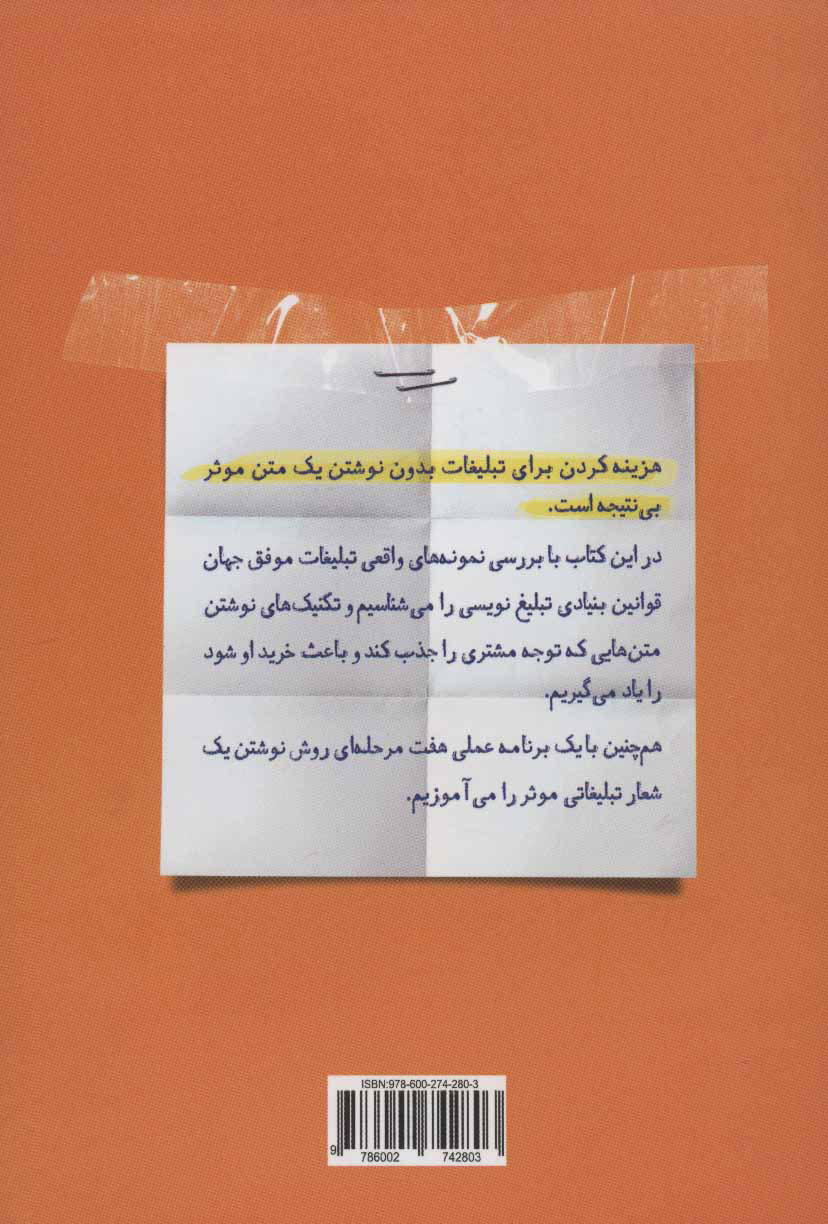 هزینه کردن برای تبلیغات بدون نوشتن یک متن موثر
بی‌نتیجه است.
در این کتاب با بررسی نمونه‌های واقعی تبلیغات موفق جهان
قوانین بنیادی تبلیغ نویسی را می‌شناسیم و تکنیک‌های نوشتن
متن‌هایی که توجه مشتری را جذب کند و باعث خرید او شود
را یاد می‌گیریم.
هم‌چنین با یک برنامه عملی هفت مرحله‌ای روش نوشتن یک
شعار تبلیغاتی موثر را می‌آموزیم.
ISBN:978-600-274-280-3
9 786002 742803